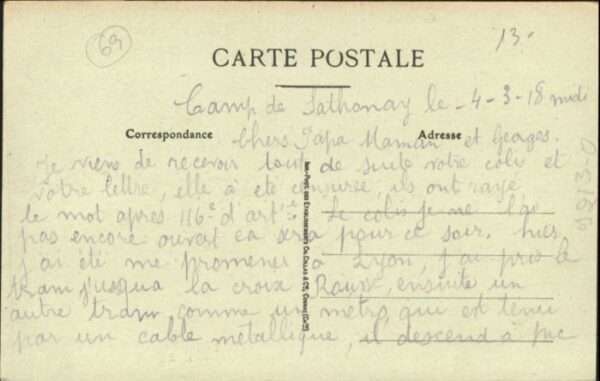 69
13.
CARTE POSTALE
Camp de Sathonay le - 4 - 3 - 18 midi
Correspondance
Adresse
Chers Papa Maman et Georges.
Je viens de recevoir tout de suite votre colis et
votre lettre, elle a été censurée, ils ont rayé
le mot après 116e d'artie. Le colis je ne l'ai
pas encore ouvert ca sera pour ce soir. hier
j'ai été me promener à Lyon, j'ai pris le
tram jusqua la croix Rousse, ensuite un
autre tram comme un métro qui est tenu
par un cable métallique, il descend à pic